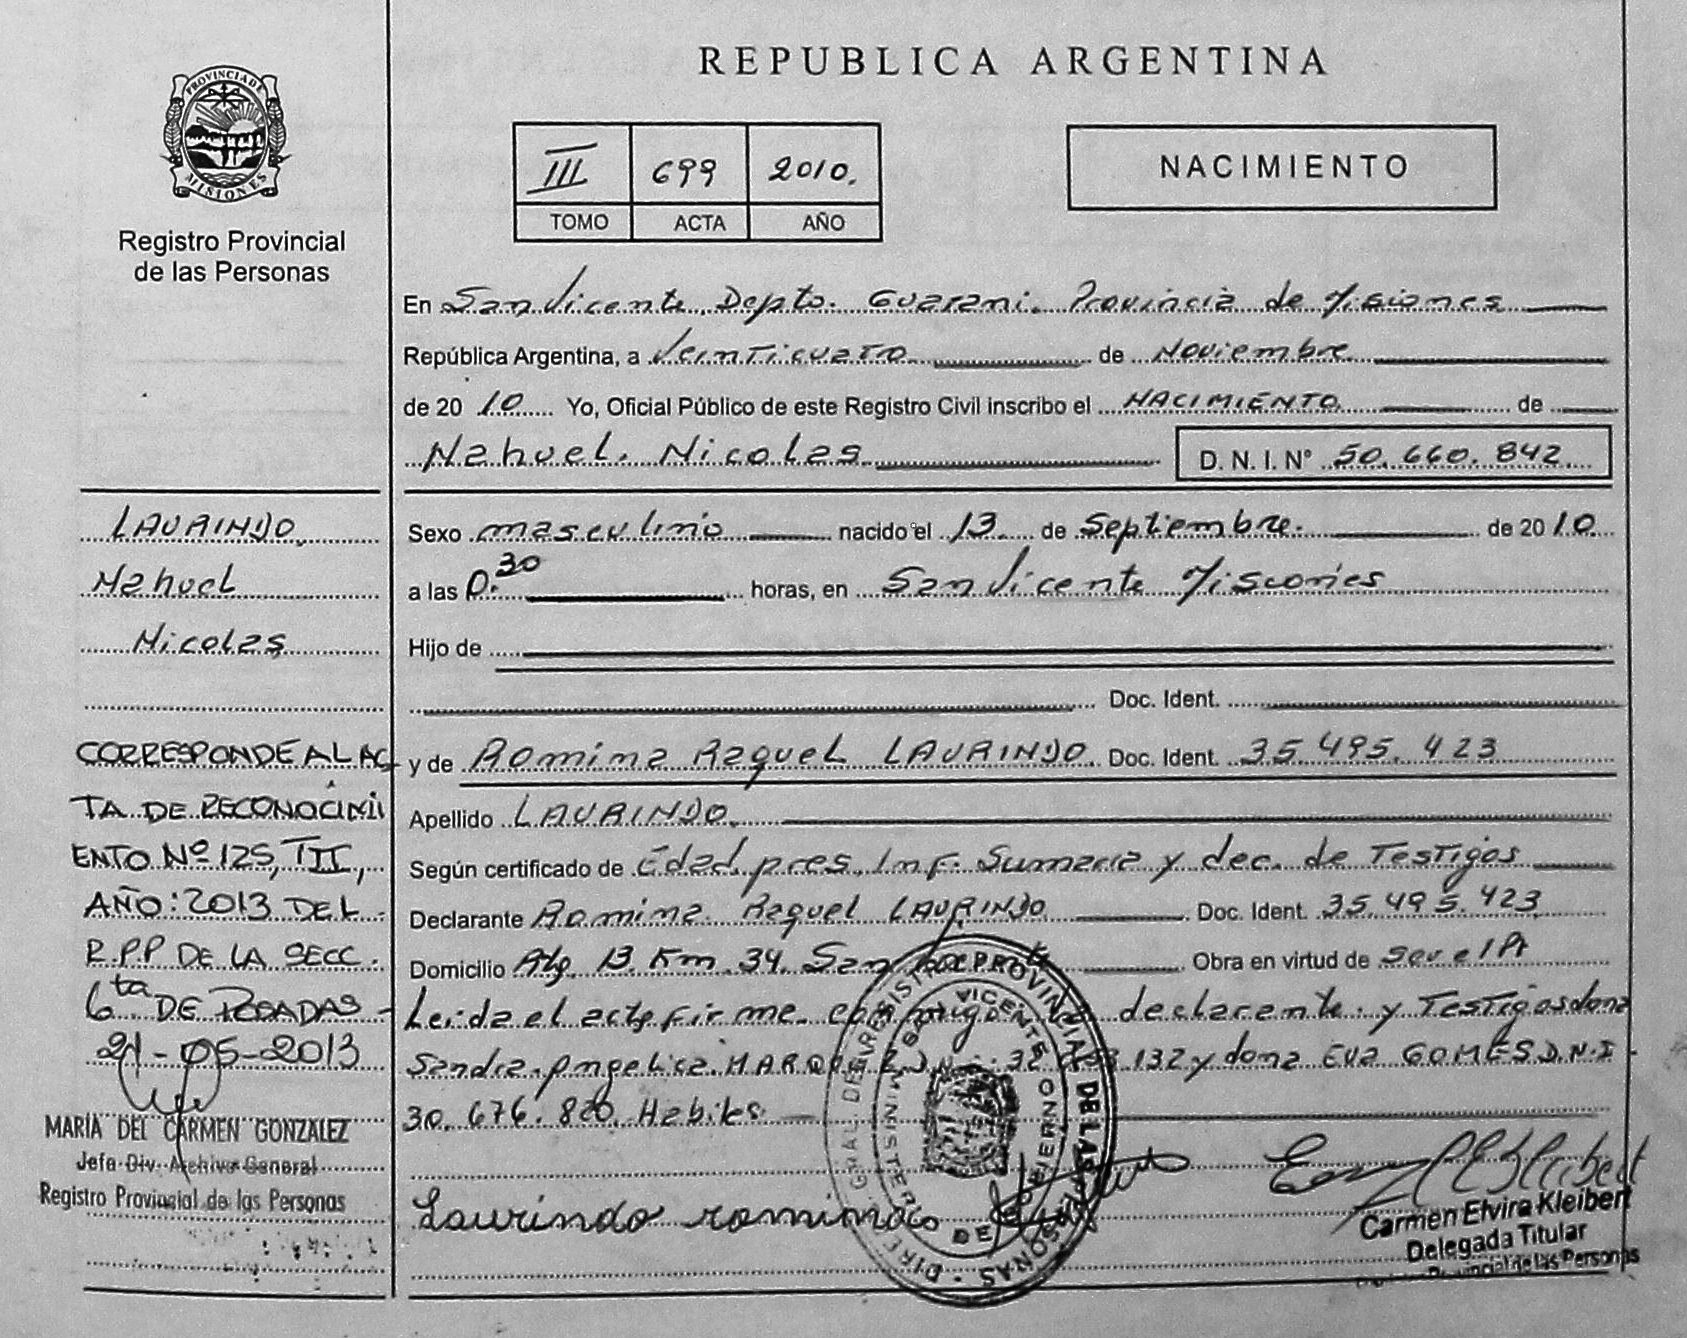 REPUBLICA ARGENTINA
PROVINCIA DE
MISIONES
Registro Provincial
de las Personas
III 699 2010.
TOMO ACTA AÑO
NACIMIENTO
En San Vicente, Depto. Guarani. Provincia de Misiones
República Argentina, a Veinticuatro de Noviembre
de 20 10 Yo, Oficial Público de este Registro Civil inscribo el NACIMIENTO de
Nahuel. Nicolas D. N. I. Nº 50.660.842
Sexo masculino nacido el 13 de Septiembre. de 20 10.
a las 0.30 horas, en San Vicente Misiones
Hijo de
Doc. Ident.
y de Romina Raquel LAURINDO. Doc. Ident. 35.495.423
Apellido LAURINDO.
Según certificado de Edad pres. Inf. Sumaria y dec. de Testigos
Declarante Romina Raquel LAURINDO Doc. Ident. 35.495.423
Domicilio 13 Km 34 San Obra en virtud de
Leida el acta firme conmigo declarante y Testigos dona
Sandra Angelica 32 132 y dona Eva GOMES D.N.I
30.676.820 Habiles
Laurindo romina
Carmen Elvira Kleibert
Delegada Titular
Provincial de las Personas
DIREC. GRAL. DEL REGISTRO PROVINCIAL DE LAS PERSONAS
MINISTERIO DE GOBIERNO
SAN VICENTE
LAURINDO.
Nahuel
Nicolas
CORRESPONDE AL AC
TA DE RECONOCIMI
ENTO Nº 125, TIII,
AÑO: 2013 DEL
R.P.P DE LA SECC.
6ta DE POSADAS -
21-05-2013
MARÍA DEL CARMEN GONZALEZ
Jefa Div. Archivo General
Registro Provincial de las Personas